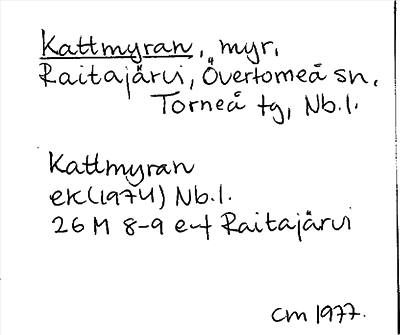 Kattmyran, myr,
Raitajärvi, Övertorneå sn,
Torneå tg, Nb.l.
Kattmyran
ek(1974) Nb.l.
26 M 8-9 e-f Raitajärvi
CM 1977.